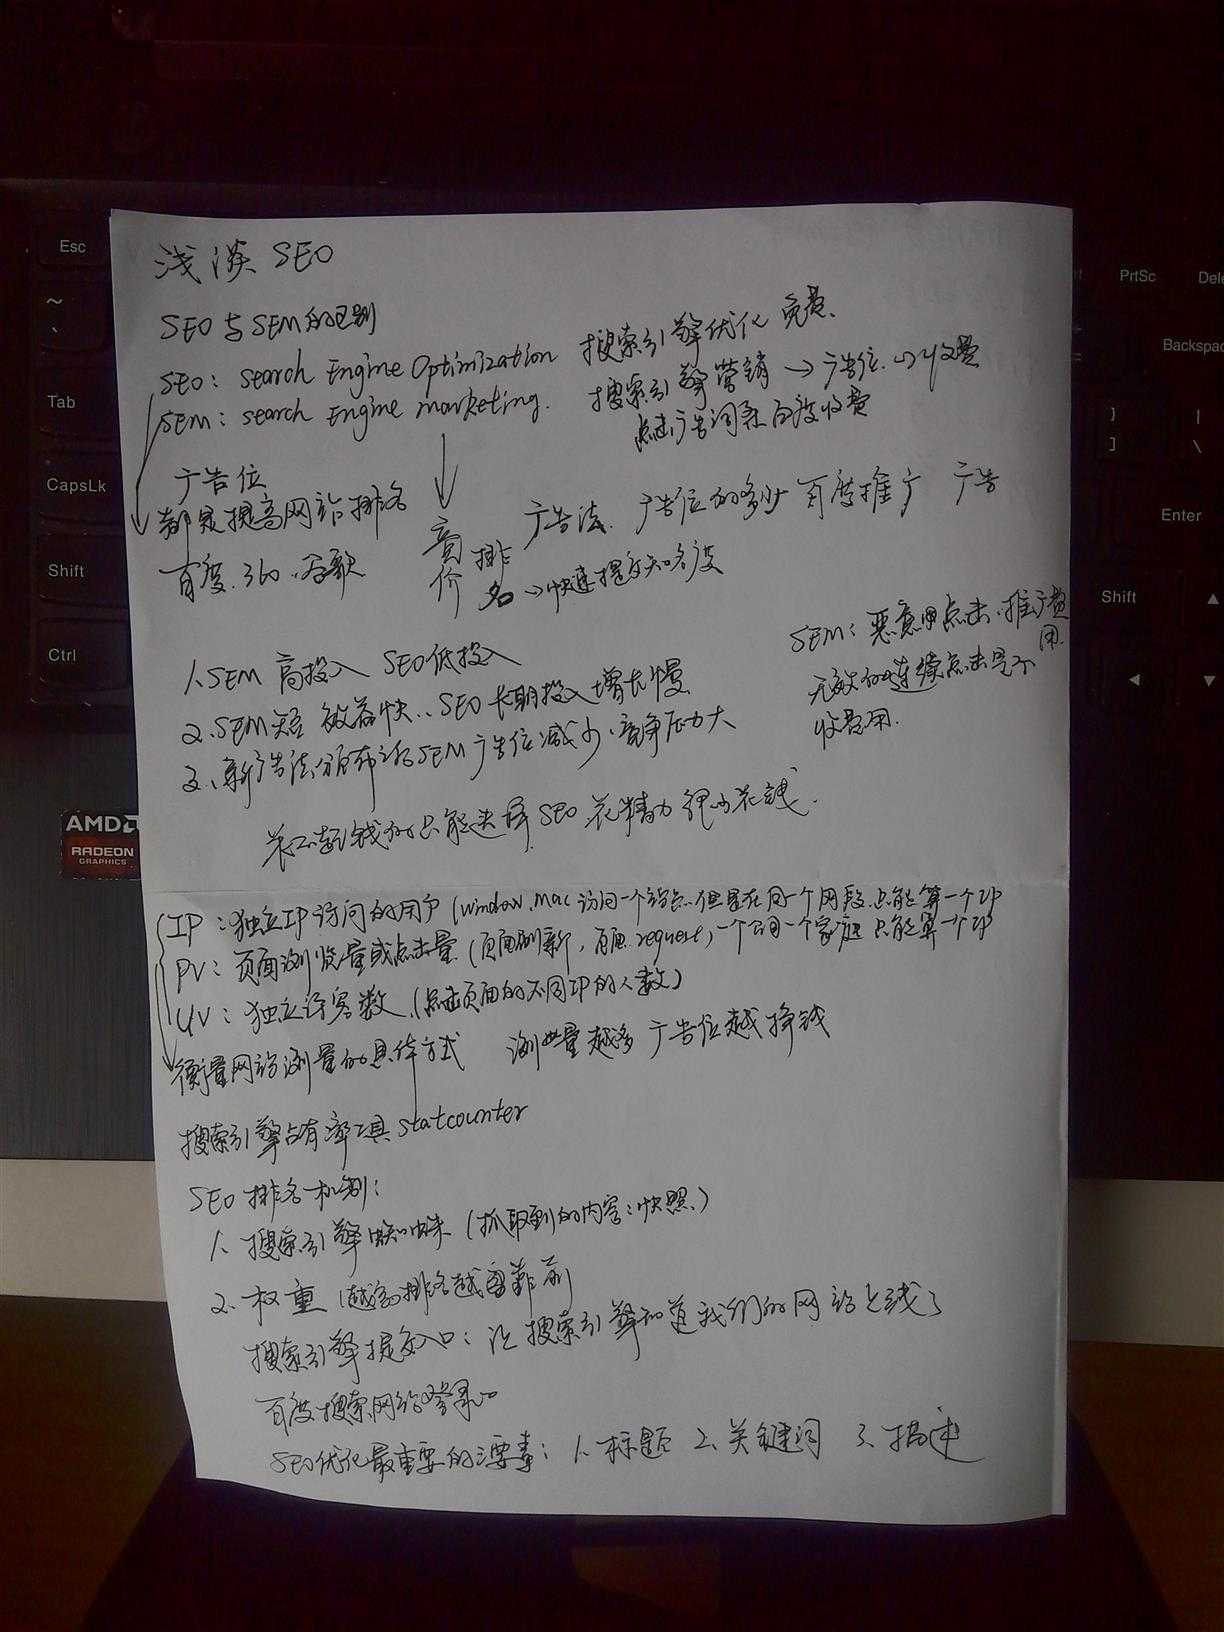 浅谈 SEO
SEO与SEM的区别
SEO: search Engine Optimization 搜索引擎优化 免费.
SEM: search Engine marketing. 搜索引擎营销 → 广告位. → 收费
点击广告词条百度收费
广告位
都是提高网站排名
百度. 360. 谷歌
竞价排名 → 快速提高知名度
广告法. 广告位的多少 百度推广 广告
SEM: 恶意点击. 推广费用.
无效的连续点击是不
收费用.
1、SEM 高投入 SEO低投入
2、SEM 效益快.. SEO 长期投入增长慢
3、新广告法颁布之后SEM广告位减少. 竞争压力大
花不起钱的只能选择SEO 花精力 很少花钱.
IP: 独立IP访问的用户 (window. mac 访问一个站点. 但是在同一个网段. 只能算一个IP
PV: 页面浏览量或点击量 (页面刷新, request) 一个公司一个家庭 只能算一个IP
UV: 独立访客数. (点击页面的不同IP的人数)
衡量网站测量的具体方式 浏览量越多 广告位越挣钱
搜索引擎占有率工具 statcounter
SEO 排名机制:
1、搜索引擎蜘蛛 (抓取到的内容: 快照.)
2、权重 (越高排名越靠前
搜索引擎提交入口: 让搜索引擎知道我们的网站上线了
百度搜索网站登录口
SEO优化最重要的三要素: 1、标题 2、关键词 3、描述
Esc
~
`
Tab
CapsLk
Shift
Ctrl
PrtSc
Dele
Backspac
}
]
|
\
Enter
Shift
AMD
RADEON
GRAPHICS